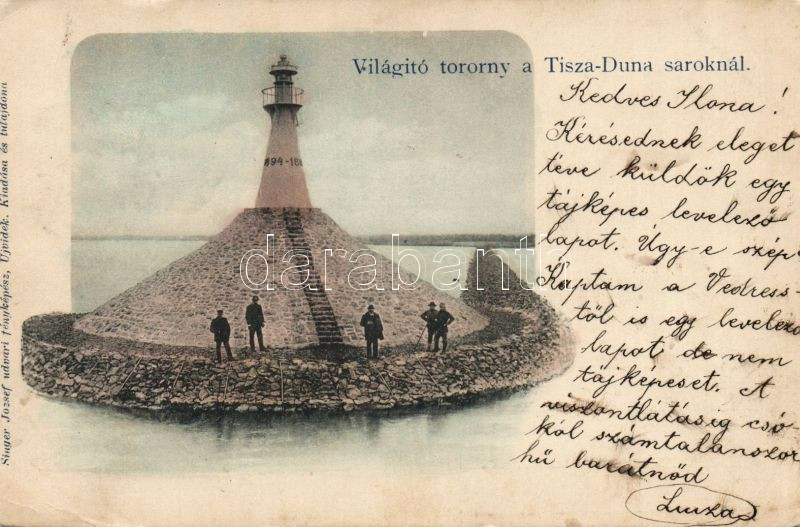 Világitó tororny a Tisza-Duna saroknál.
Kedves Ilona!
Kérésednek eleget
téve küldök egy
tájképes levelező
lapot. Úgy-e szép?
Kaptam a Vedress-
től is egy levelező
lapot de nem
tájképeset. A
viszontlátásig csó-
kol számtalanszor
hű barátnőd
Luiza
1894-189
darabanth
Singer József udvari fényképész, Ujvidék. Kiadása és tulajdona